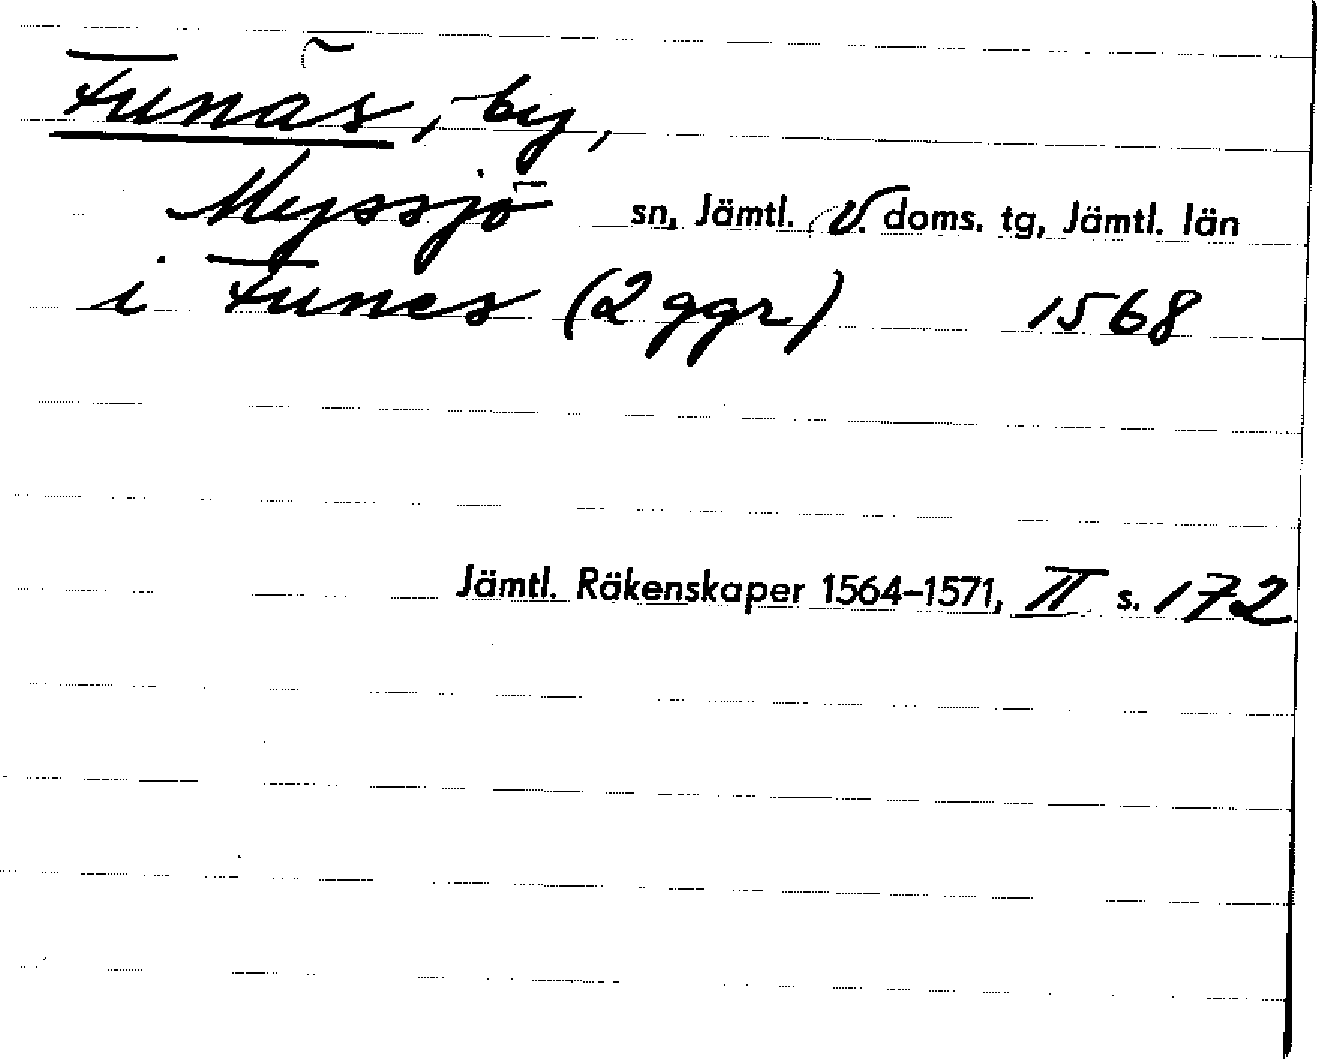 Funäs, by,
Myssjö sn, Jämtl. v. doms. tg, Jämtl. län
i Funes (2 ggr) 1568
Jämtl. Räkenskaper 1564–1571, II s. 172